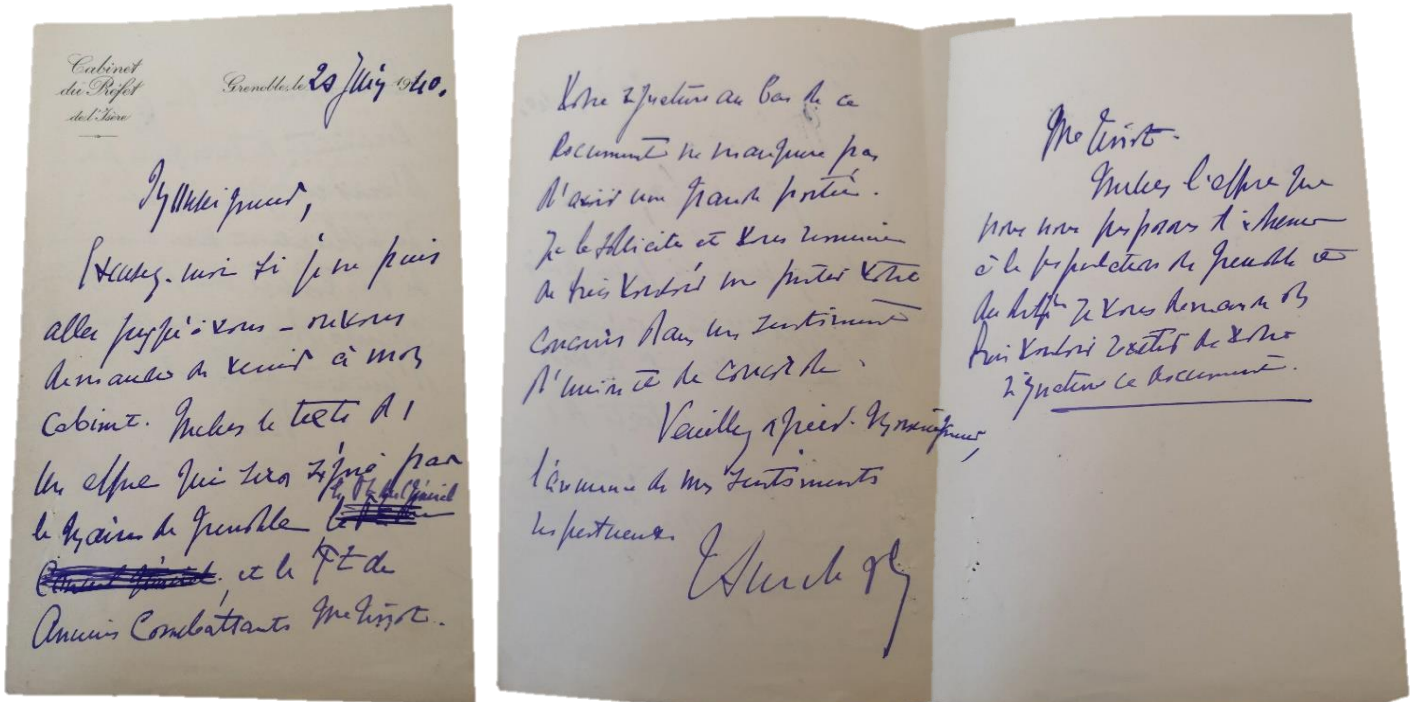 Cabinet
du Préfet
de l'Isère
Grenoble, le 20 Juin 1940.
Monseigneur,
Excusez-moi si je ne puis
aller jusqu'à vous – ou vous
demander de venir à mon
cabinet. le texte d'
un appel qui sera signé par
le Maire de Grenoble
Conseil Général, et le Pt des
Anciens Combattants Me Tissot.
Votre signature au bas de ce
document ne manquera pas
d'avoir une grande portée.
Je la sollicite et vous remercie
de bien vouloir me prêter votre
concours dans un sentiment
d'union et de concorde.
Veuillez agréer, Monseigneur,
l'assurance de mes sentiments
respectueux
Me Tissot.
l'appel que
nous nous proposons d'adresser
à la population de Grenoble et
du Je vous demande de
bien vouloir revêtir de votre
signature ce document.